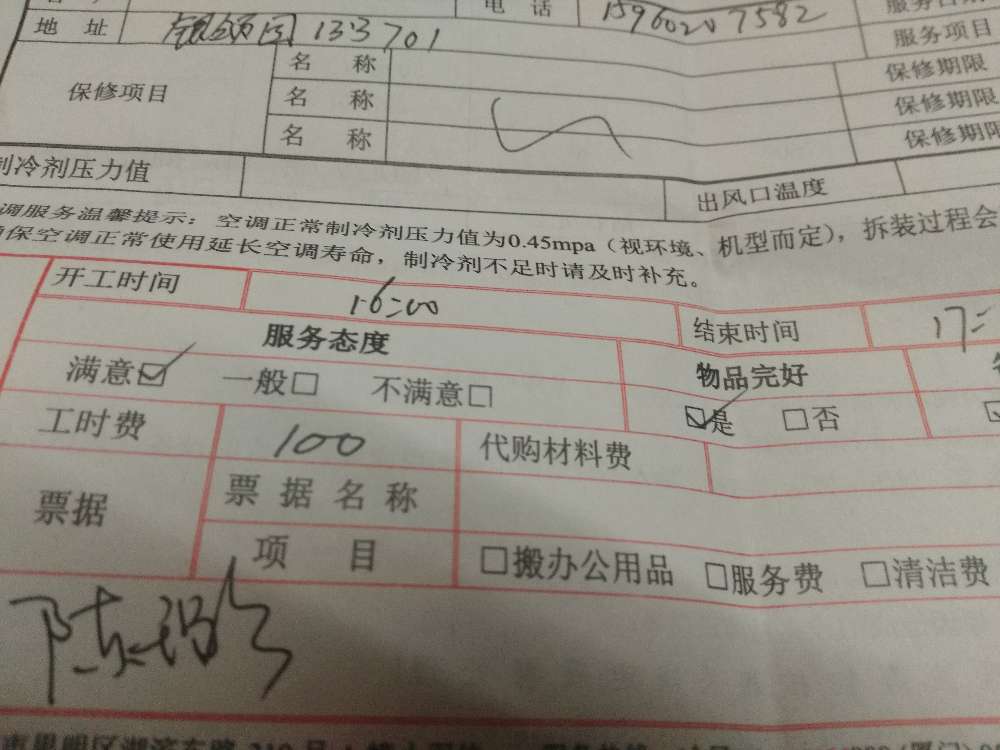 电 话 15960207582 服务日期
地 址 银领国 133 701 服务项目
保修项目 名 称 保修期限
名 称 保修期限
名 称 保修期限
制冷剂压力值 出风口温度
调服务温馨提示：空调正常制冷剂压力值为0.45mpa（视环境、机型而定），拆装过程会
确保空调正常使用延长空调寿命，制冷剂不足时请及时补充。
开工时间 16:00 结束时间 17:
服务态度 物品完好
满意☑ 一般□ 不满意□ ☑是 □否
工时费 100 代购材料费
票据 票据名称
项 目 □搬办公用品 □服务费 □清洁费
陈